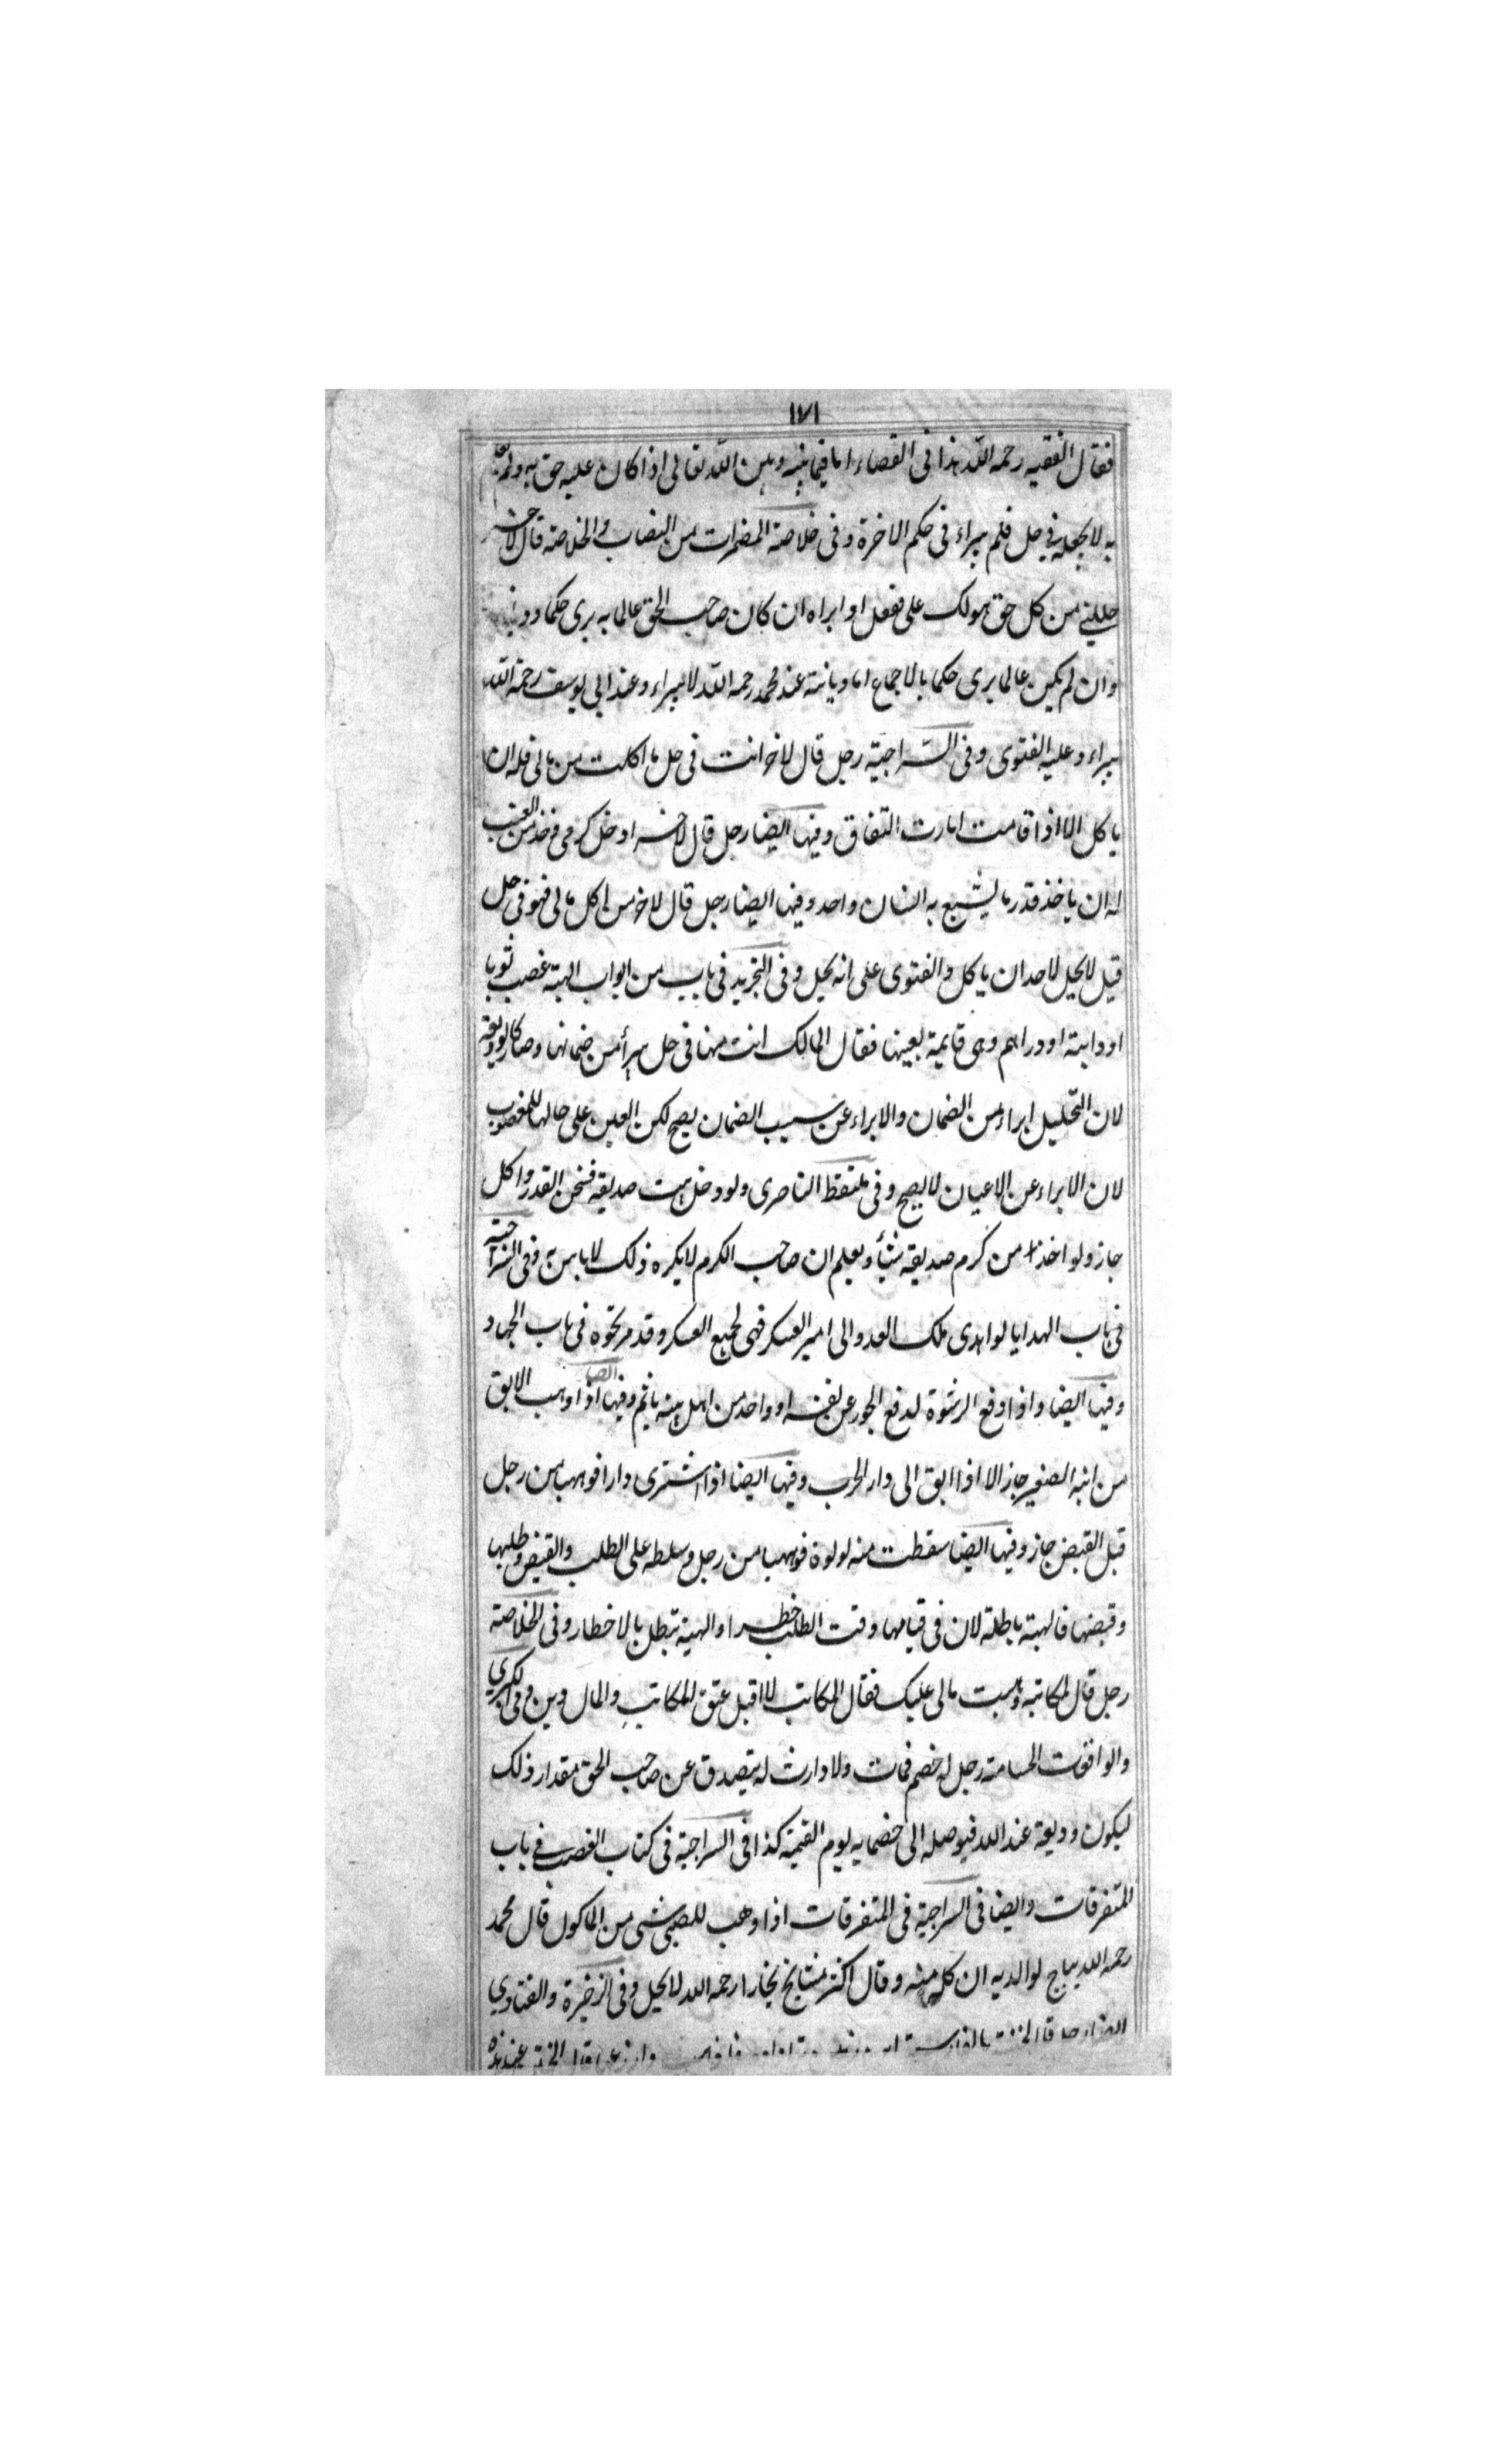 ١٧١
فقال الفقيه رحمه الله هذا فى القضاء اما فيما بينه وبين الله تعالى اذا كان عليه حق به ولم
به لا يجعله فى حل فلم يبراء فى حكم الاخرة وفى خلاصة المضمرات من النصاب والخلاصة قال لاخر
حللنى من كل حق هو لك على ففعل او ابراه ان كان صاحب الحق عالما به برى حكما وديانة
وان لم يكن عالما برى حكما بالاجماع اما ديانة عند محمد رحمه الله لا يبراء وعند ابى يوسف رحمة الله
يبراء وعليه الفتوى وفى السراجية رجل قال لاخر انت فى حل ما اكلت من مالى فله ان
ياكل الا اذا قامت امارت النفاق وفيها ايضا رجل قال لاخر ادخل كرمى فخذ من العنب
له ان ياخذ قدر ما يشبع به انسان واحد وفيها ايضا رجل قال لاخر من اكل مالى فهو فى حل
قيل لا يحل لاحد ان ياكل والفتوى على انه يحل وفى التجريد فى باب من ابواب الهبة غصب ثوبا
او دابة او دراهم وهى قايمة بعينها فقال المالك انت منها فى حل يبرأ من ضمانها وصار كالوديعة
لان التحليل ابراء من الضمان والابراء عن سبب الضمان يصح لكن العين على حالها للمغصوب
لان الابراء عن الاعيان لا يصح وفى ملتقط الناصرى ولو دخل بيت صديقه فسخن القدر واكل
جاز ولو اخذ من كرم صديقه شيأ ويعلم ان صاحب الكرم لا يكره ذلك لا باس به وفى السراجية
فى باب الهدايا لو اهدى ملك العدو الى امير العسكر فهى لجميع العسكر وقد مر نحوه فى باب الجهاد
وفيها ايضا واذا دفع الرشوة لدفع الجور عن نفسه او واحد من اهل بيته ياثم وفيها ايضا اذا وهب الابق
من ابنه الصغير جاز الا اذا ابق الى دار الحرب وفيها ايضا اذا اشترى دارا فوهبها من رجل
قبل القبض جاز وفيها ايضا سقطت منه لولوة فوهبها من رجل وسلطه على الطلب والقبض وطلبها
وقبضها فالهبة باطلة لان فى قيامها وقت الطلب خطرا والهبة تبطل بالاخطار وفى الخلاصة
رجل قال لمكاتبه وهبت مالى عليك فقال المكاتب لا اقبل عتق المكاتب والمال دين وفى الكبرى
والواقعات الحسامية رجل له خصم فمات ولا وارث له يتصدق عن صاحب الحق مقدار ذلك
ليكون وديعة عند الله فيوصله الى خصمايه يوم القيمة كذا فى السراجية فى كتاب الغصب فى باب
المتفرقات وايضا فى السراجية فى المتفرقات اذا وهب للصبى شى من الماكول قال محمد
رحمه الله يباح لوالديه ان ياكلا منه وقال اكثر مشايخ بخارا رحمه الله لا يحل وفى الذخيرة والفتاوى